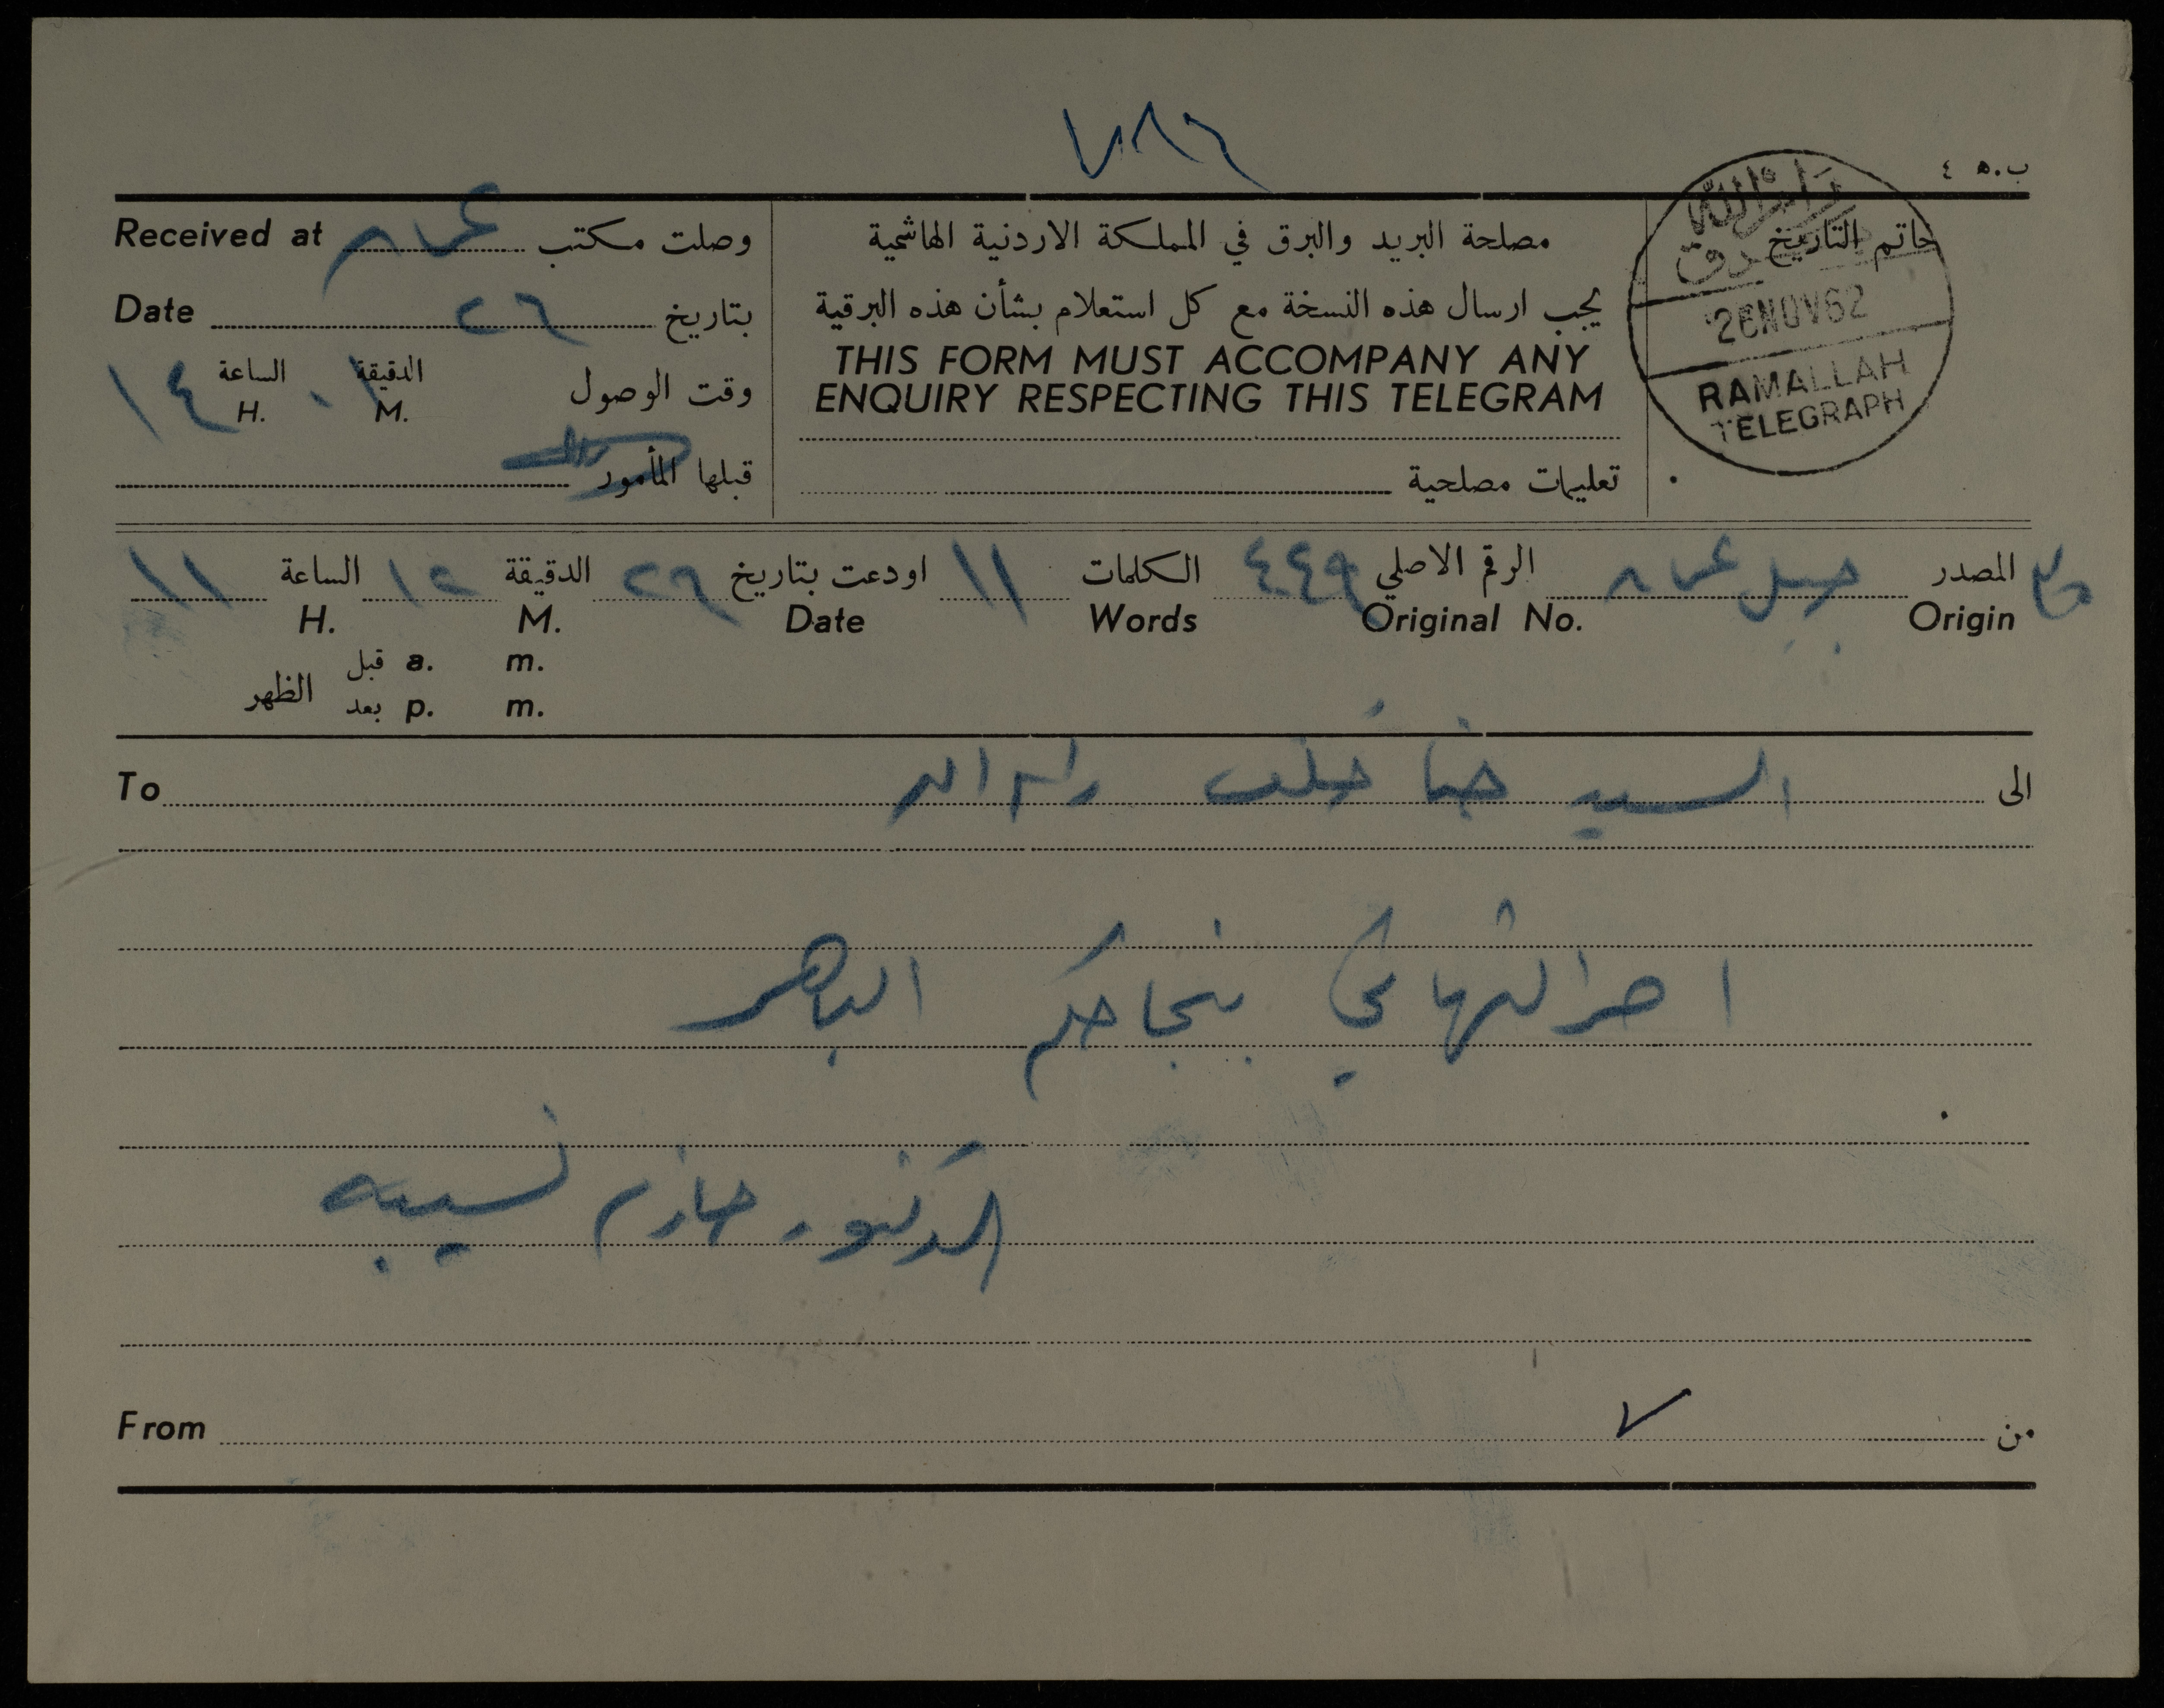 ٧٨٦
ب.ه ٤
Received at عمان وصلت مكتب
مصلحة البريد والبرق في المملكة الاردنية الهاشمية
خاتم التاريخ
رام الله
برق
26NOV62
RAMALLAH
TELEGRAPH
Date ٢٦ بتاريخ
يجب ارسال هذه النسخة مع كل استعلام بشأن هذه البرقية
THIS FORM MUST ACCOMPANY ANY
ENQUIRY RESPECTING THIS TELEGRAM
وقت الوصول الدقيقة ٠١ الساعة ١٤
M. H.
قبلها المأمور
تعليمات مصلحية
المصدر جبل عمان الرقم الاصلي ٤٤٩ الكلمات ١١ اودعت بتاريخ ٢٦ الدقيقة ١٢ الساعة ١١
Origin Original No. Words Date M. H.
قبل a. m.
الظهر
بعد p. m.
To السيد حنا خلف رام الله الى
احر التهاني بنجاحكم الباهر
الدكتور حازم نسيبه
From من